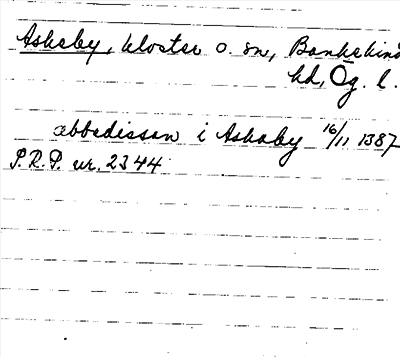 Askeby, kloster o. sn, Bankekind
hd, Ög. l.
abbedissan i Askaby 16/11 1387
P.R.P. nr. 2344